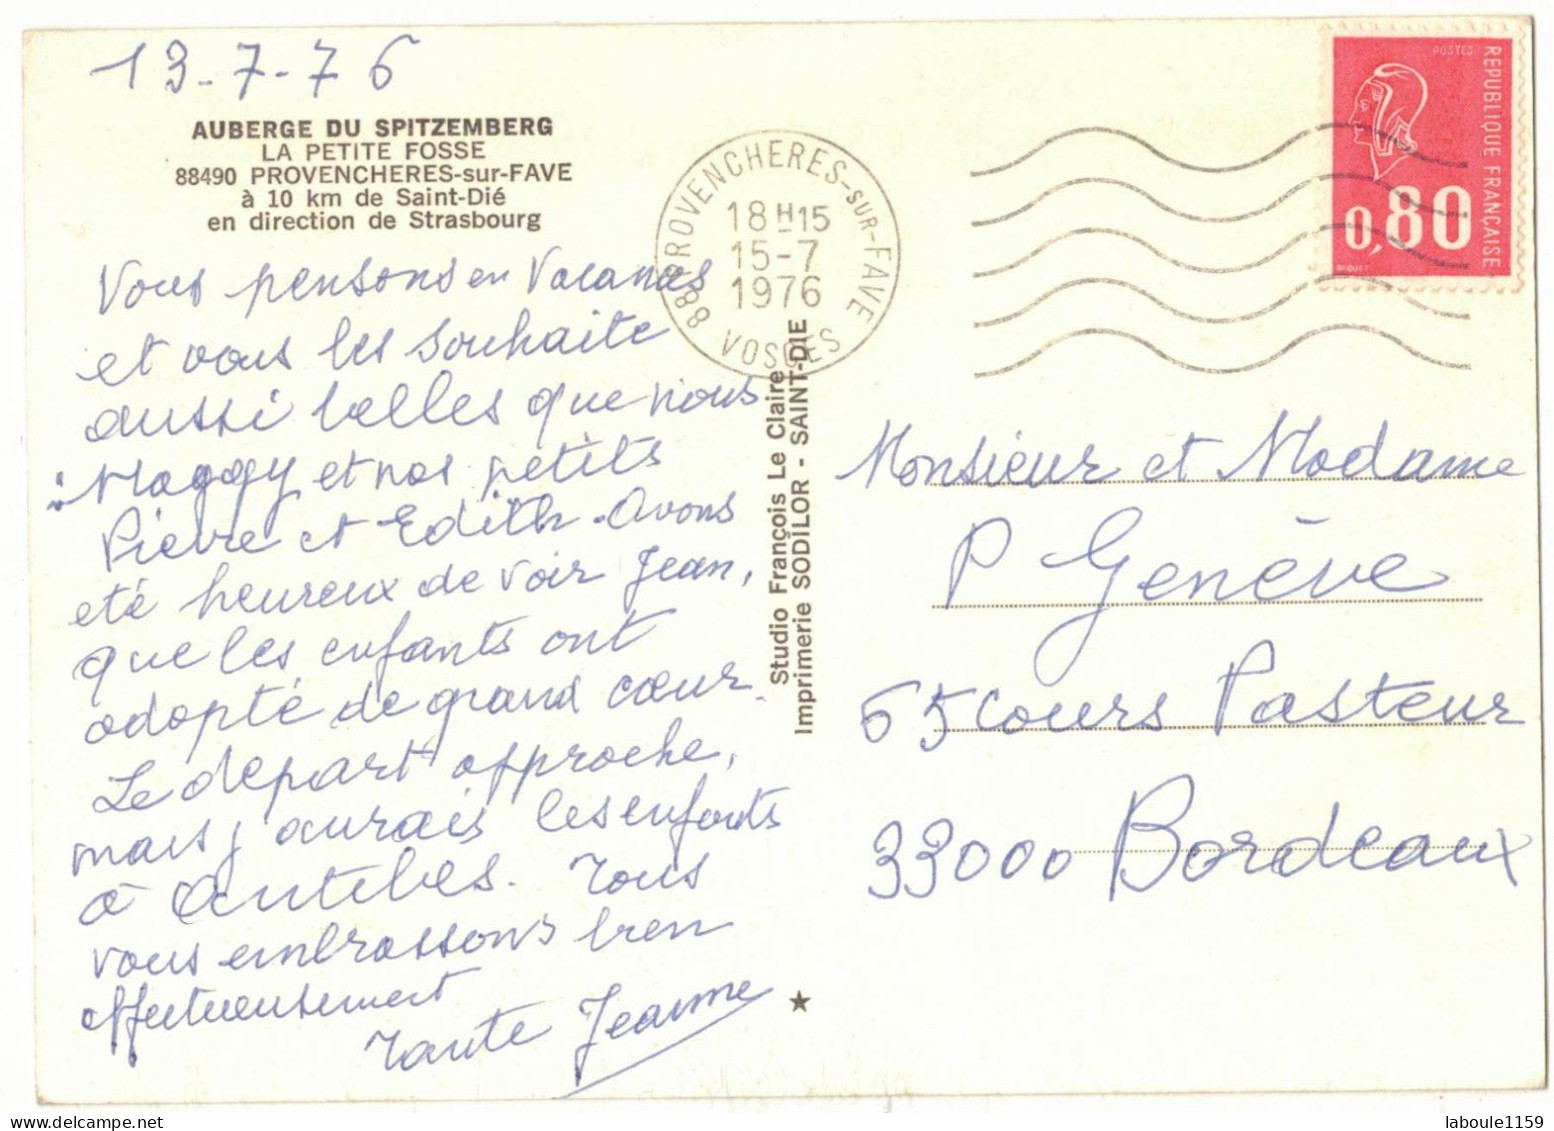 13-7-76
AUBERGE DU SPITZEMBERG
LA PETITE FOSSE
88490 PROVENCHERES-sur-FAVE
à 10 km de Saint-Dié
en direction de Strasbourg
Vous pensons en Vacances
et vous les souhaite
aussi belles que nous
Maggy et nos petits
Pierre et Edith. Avons
eté heureux de voir Jean,
que les enfants ont
adopté de grand cœur.
Le départ approche,
mais j'aurais les enfants
à Antibes. Tous
vous embrassons bien
affectueusement
Tante Jeanne
88 PROVENCHERES-sur-FAVE
18H15
15-7
1976
VOSGES
Studio François Le Claire
Imprimerie SODILOR - SAINT-DIE
POSTES
REPUBLIQUE FRANÇAISE
0,80
BEQUET
Monsieur et Madame
P Genève
65 cours Pasteur
33000 Bordeaux
laboule1159